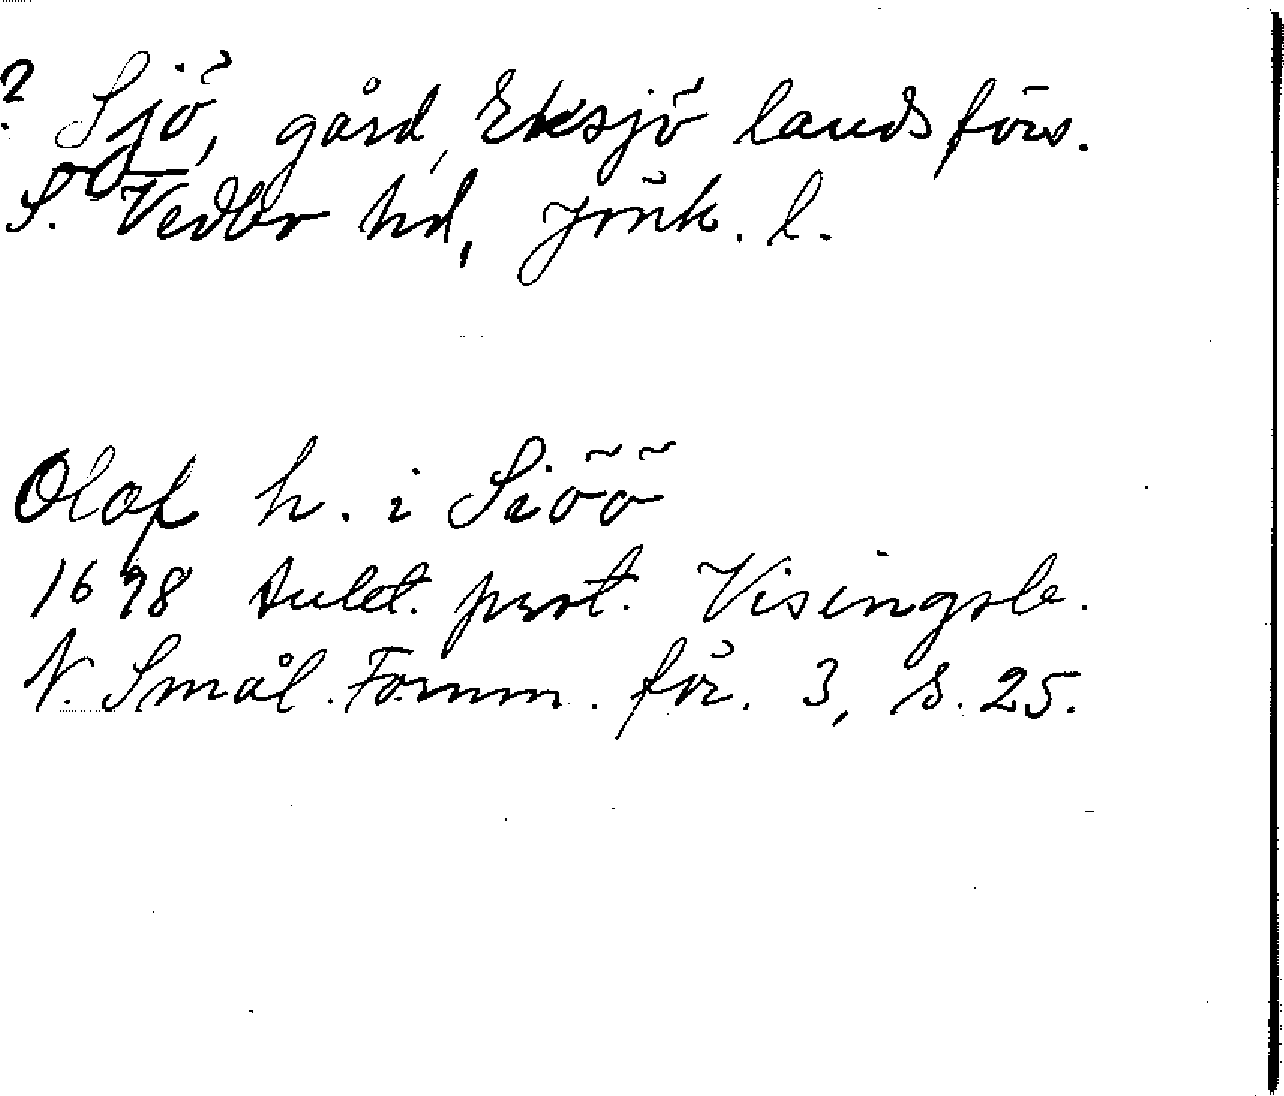 ? Sjö, gård, Eksjö landsförs.
S. Vedbo hd, Jönk. l.
Olof h. i Siöö
1698 Avlet. prot. Visingsb.
N. Smål. Fornm. för. 3, s. 25.